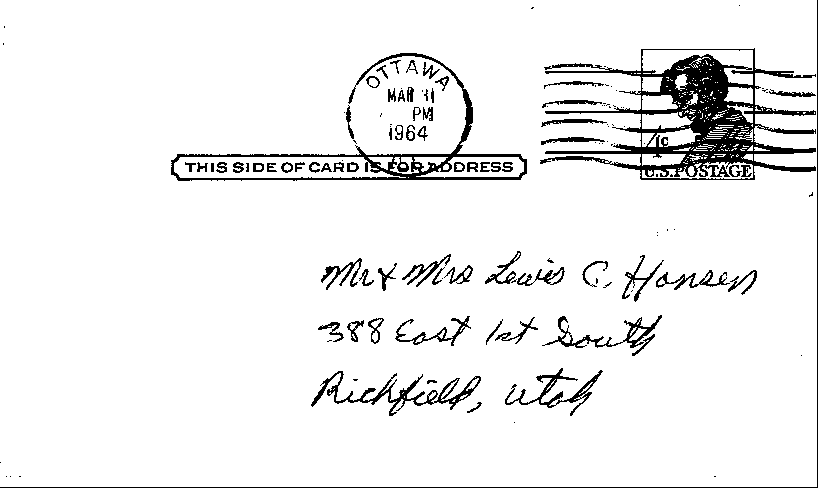 OTTAWA
MAR 31
PM
1964
ILL
THIS SIDE OF CARD IS FOR ADDRESS
U.S. POSTAGE
Mr & Mrs Lewis C. Hansen
388 East 1st South
Richfield, Utah